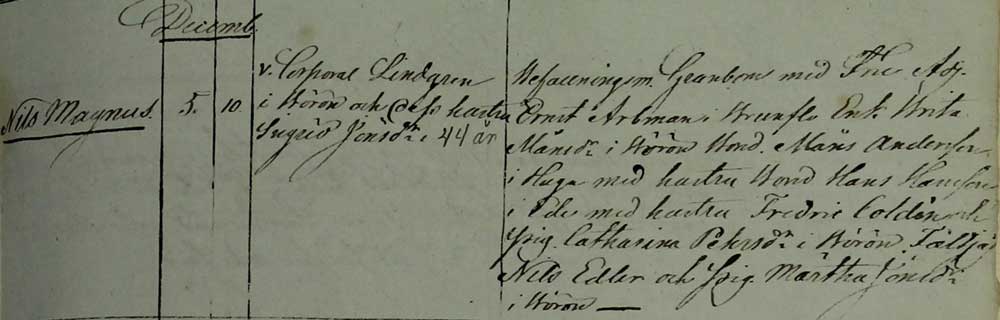 Decemb.
Nils Magnus. 5. 10.
v. Corporal Lindgren
i Körön och dess hustru
Sigrid Jönsdr. 44 år
Befallningsm. Granbom med Fru Adj.
Ernst Arbman i Brunflo Enk. Brita
Månsdr i Körön Bond. Måns Andersson
i Haga med hustru Bond Hans Hansson
i Ede med hustru Fredric Coldin och
Pig. Catharina Pehrsdr i Körön
Nils Edler och Pig. Märtha Jönsdr
i Körön —